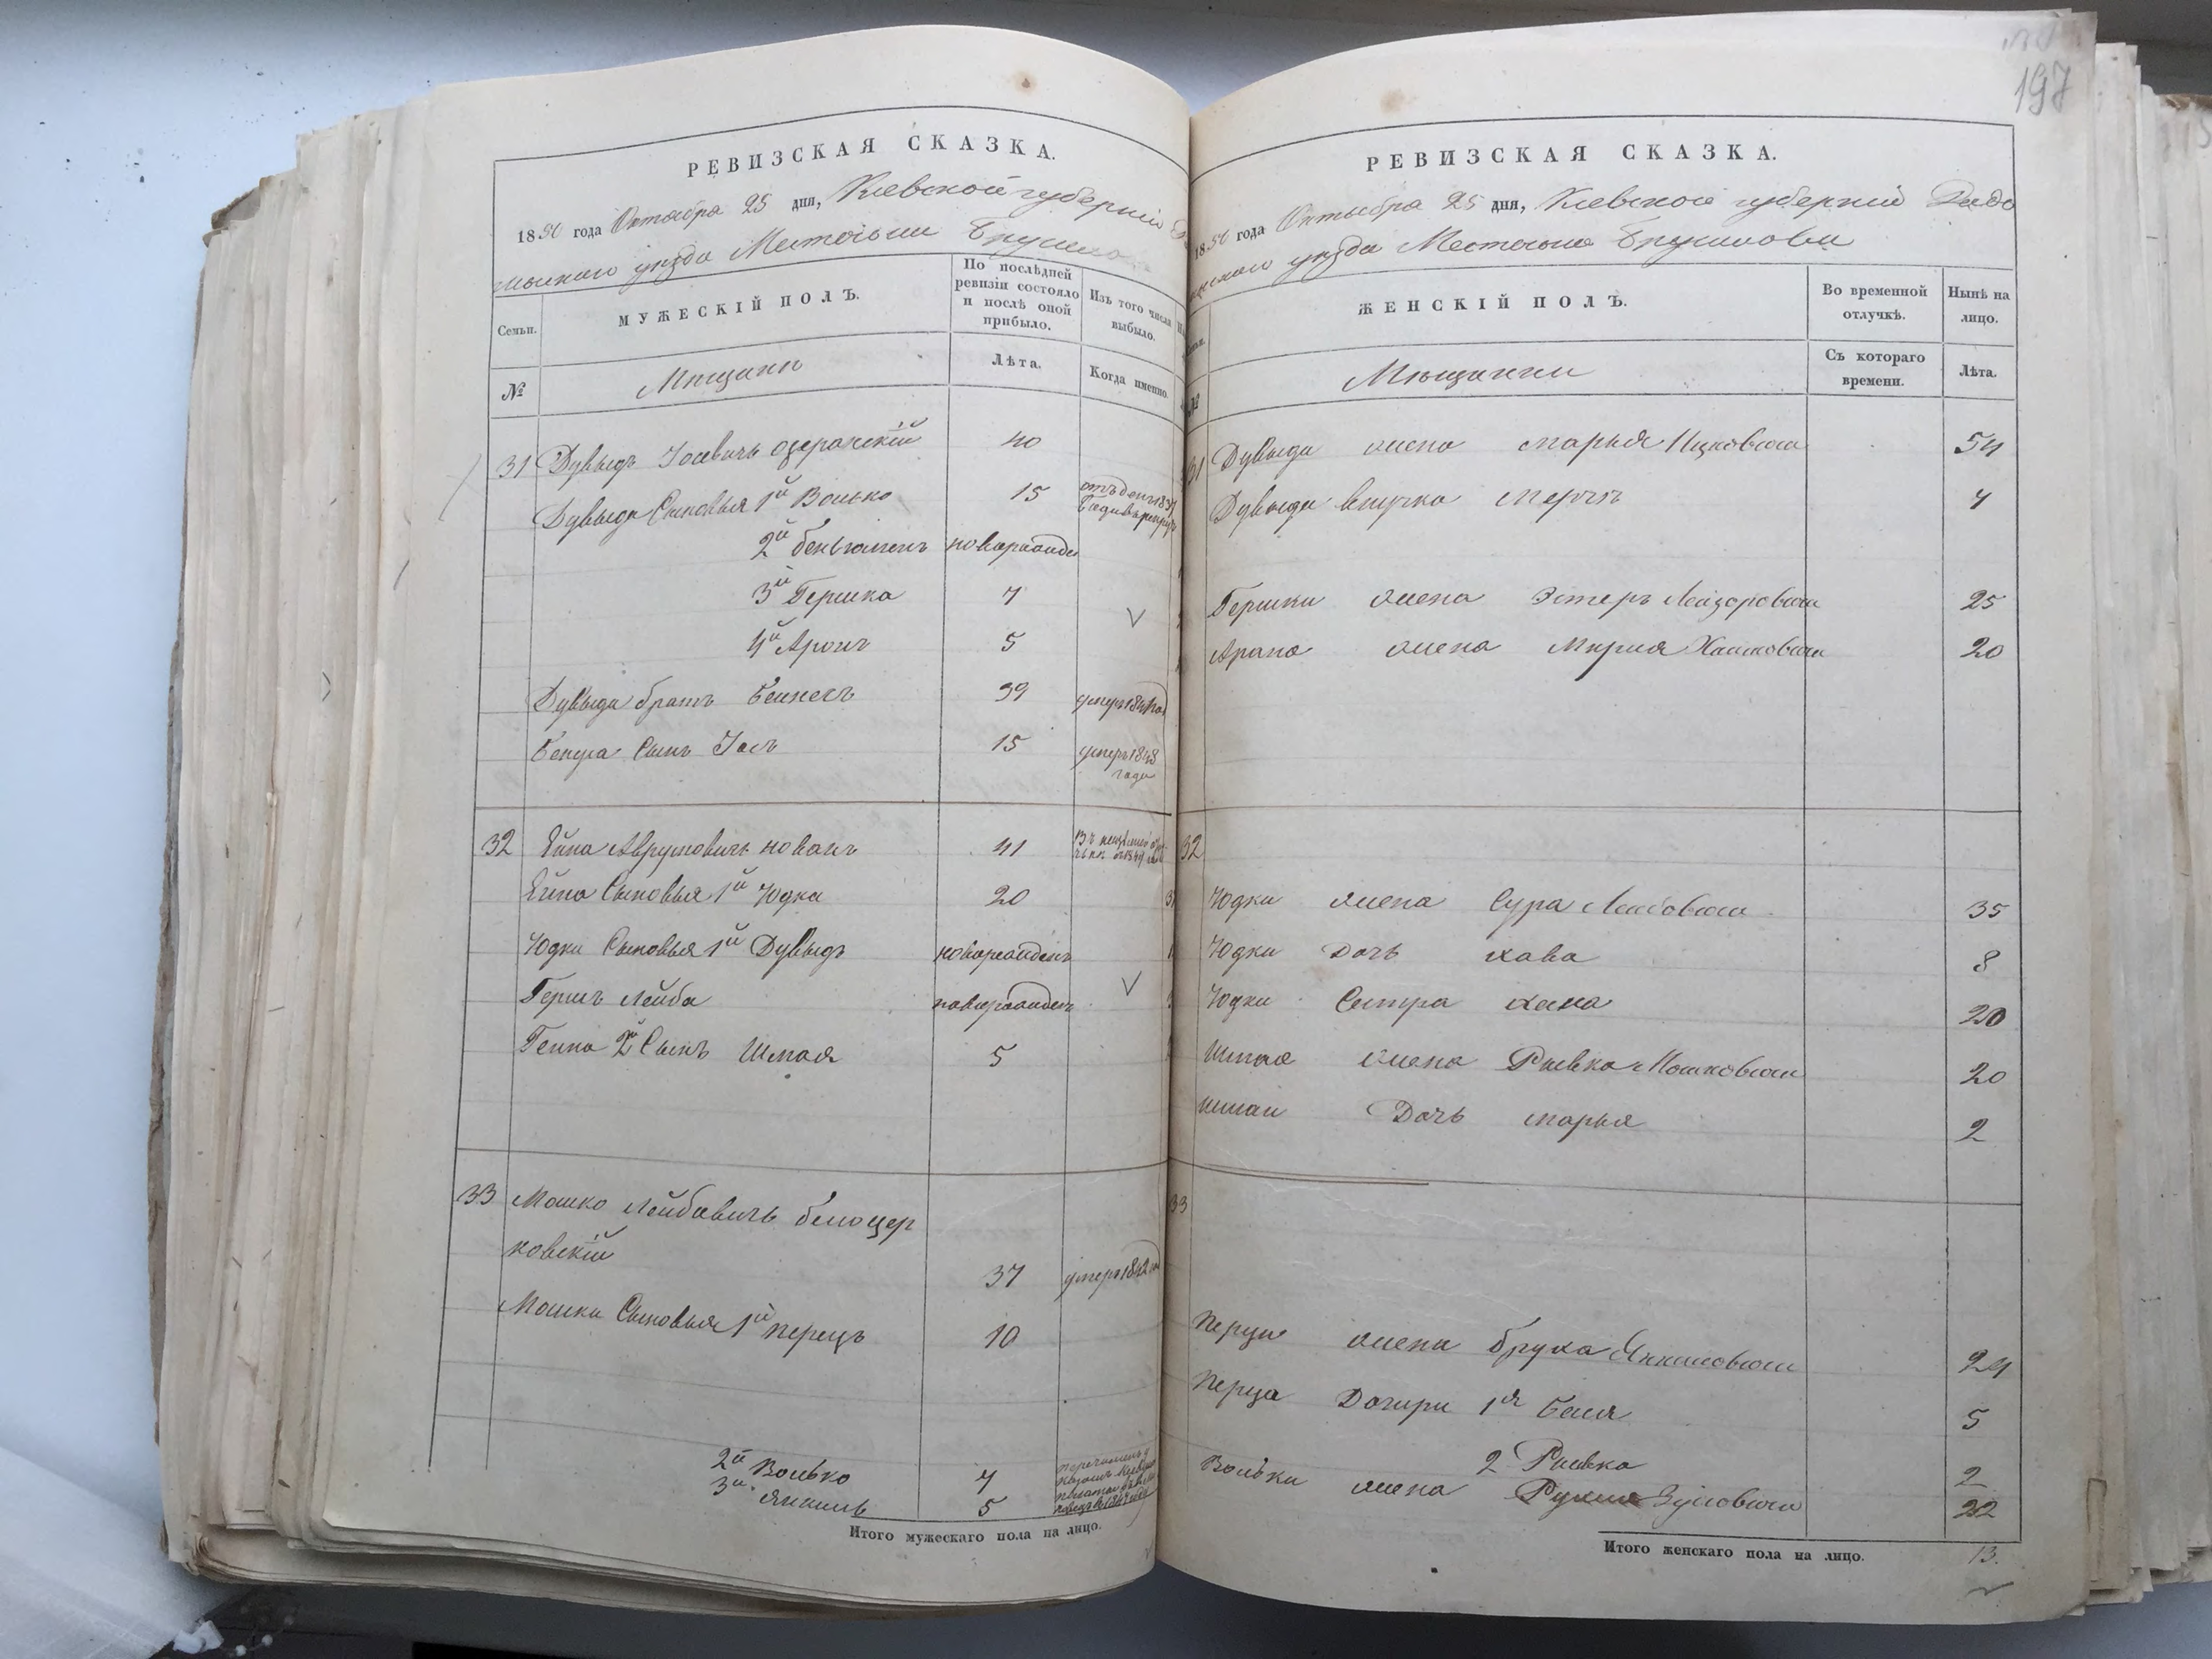 РЕВИЗСКАЯ СКАЗКА.
1850 года Октября 25 дня, Кіевской губерніи
уезда Местечка Брусилова
Семьи.
МУЖЕСКІЙ ПОЛЪ.
По послѣдней ревизіи состояло и послѣ оной прибыло.
Изъ того числа выбыло.
№
Мещане
Лѣта.
Когда именно.
31 Дувыдъ Іосевичъ Озеранскій 40
Дувыда Сыновья 1й Волько 15
2й Беньюменъ новорожде
3й Гершко 7
4й Аронъ 5
Дувыда братъ 39 умеръ 184
Сынъ Іось 15 умеръ 1848 года
32 Аврумовичъ Новакъ 41
Сыновья 1й Юдка 20
Юдки Сыновья 1й Дувыдъ новорожденъ
Гершъ Лейба новорожденъ
2й Сынъ Шмая 5
33 Мошко Лейбовичъ Белоцер
ковскій 37 умеръ 1842
Мошки Сыновья 1й Перецъ 10
2й Волько 7
3й Янкель 5
Итого мужескаго пола на лицо.
197
РЕВИЗСКАЯ СКАЗКА.
1850 года Октября 25 дня, Кіевской губерніи Радо
мысльскаго уезда Местечка Брусилова
ЖЕНСКІЙ ПОЛЪ.
Во временной отлучкѣ.
Нынѣ на лицо.
№
Мещанки
Съ котораго времени.
Лѣта.
31 Дувыда жена Марья Ицковна 54
Дувыда внучка 7
Гершки жена Эстеръ Лейзоровна 25
Арона жена Мирля 20
32
Юдки жена Сура Лейбовна 35
Юдки Дочь Хава 8
Юдки Сестра Хана 20
Шмая жена Рывка Мошковна 20
Шмаи Дочь Марья 2
33
Перца жена Бруха Янкелевна 24
Перца Дочери 1я Бейля 5
2 Рывка 2
Вольки жена 22
Итого женскаго пола на лицо. 13.